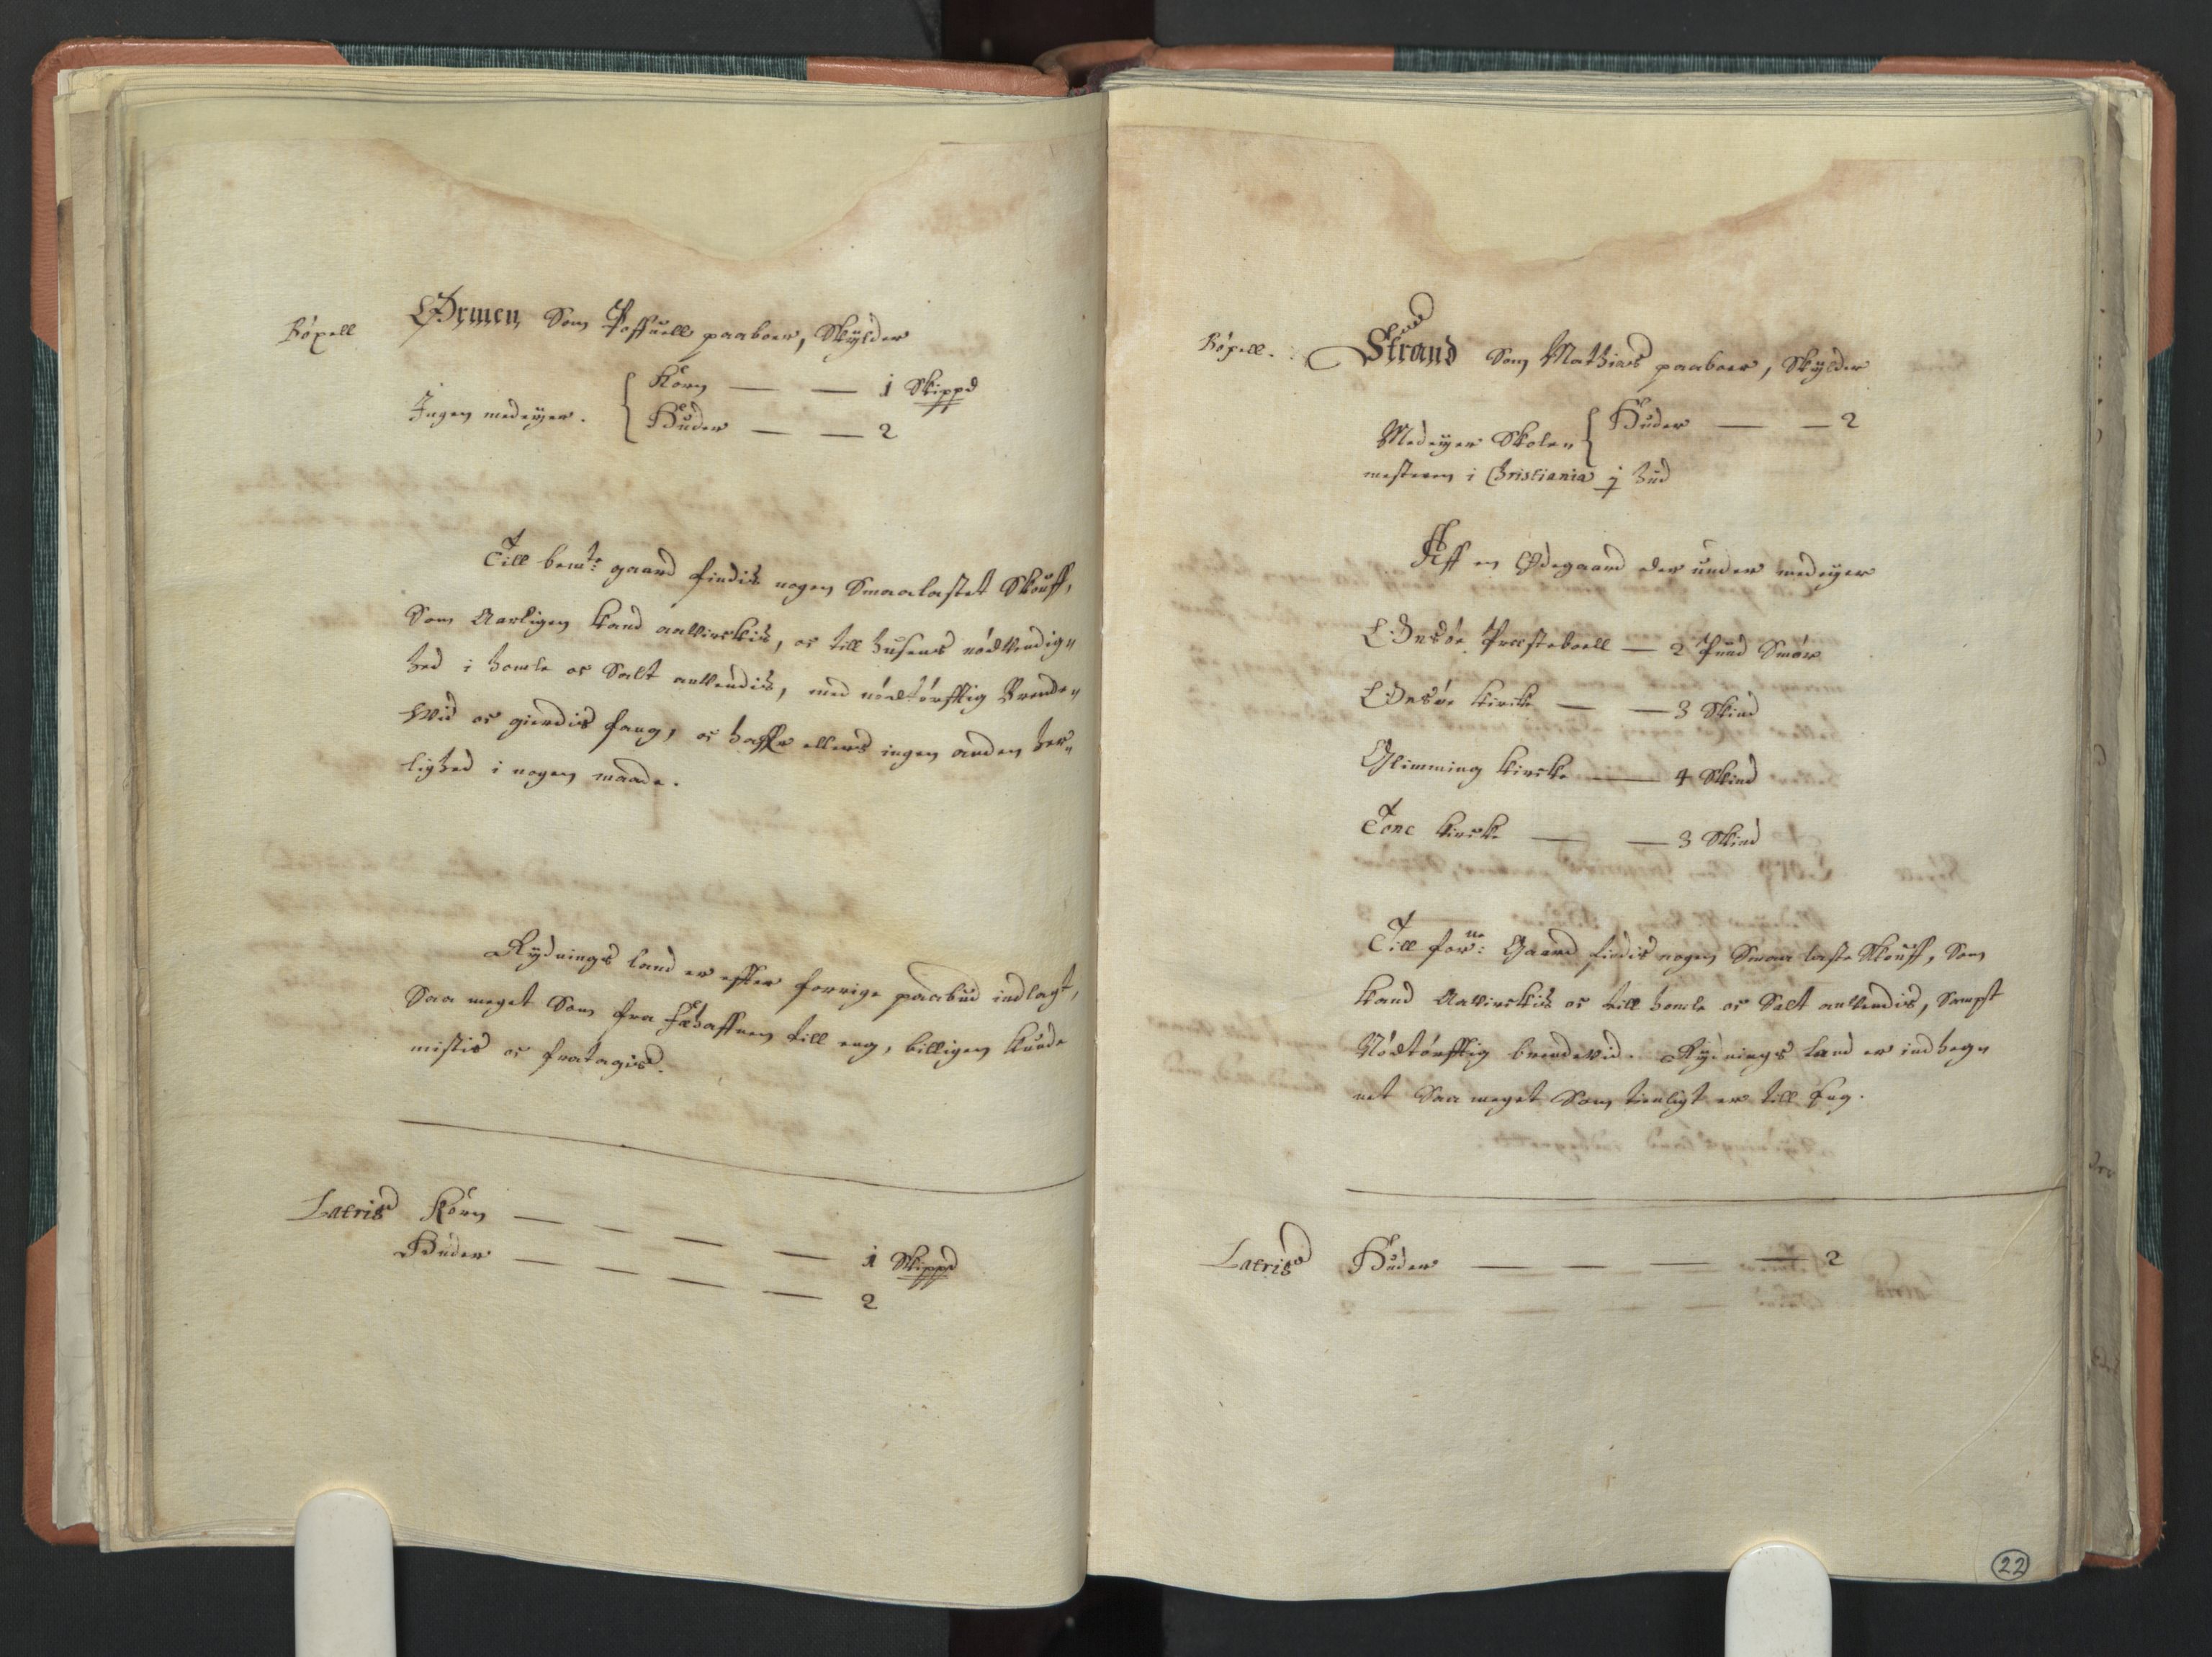 Röxell Ørmen Som Poffuell paaboer, Skylder
Ingen medeyer. { Körn — — 1 Skippd
Huder — — 2
Till bemte: gaard findis nogen Smaalastet Skouff,
Som Aarligen kand aavirckis, oc till husens nødvendig„
hed i homle oc Salt anvendis, med nödtörfftig Brende„
Wid oc gierdis fang, oc haffr ellers ingen anden her„
lighed i nogen maade.
Rydnings land er effter forrige paabud indlagt,
Saa meget Som fra fæhaffnen till eng, billigen kunde
mistis oc fratagis.
Lateris Körn — — — — 1 Skippd
Huder — — — — 2
Röxell. Strand Som Mathias paaboer, Skylder
Medeyer Skole„ { Huder — — 2
mesteren i Christiania 1 hud
Aff en Ødegaard der under medeyer
Onsöe Præsteboell — 2 Pund Smör
Onsöe kircke — — 3 Skind
Glimming kircke — 4 Skind
Tonc kircke — — 3 Skind
Till forne: Gaard findis nogen Smaa laste Skouff, Som
kand Aavirckis oc till homle oc Salt anvendis, Sampt
Nödtörfftig brendevid. Rydnings land er indheg„
net Saa meget Som tienligt er till Eng.
Lateris Huder — — — — 2
22